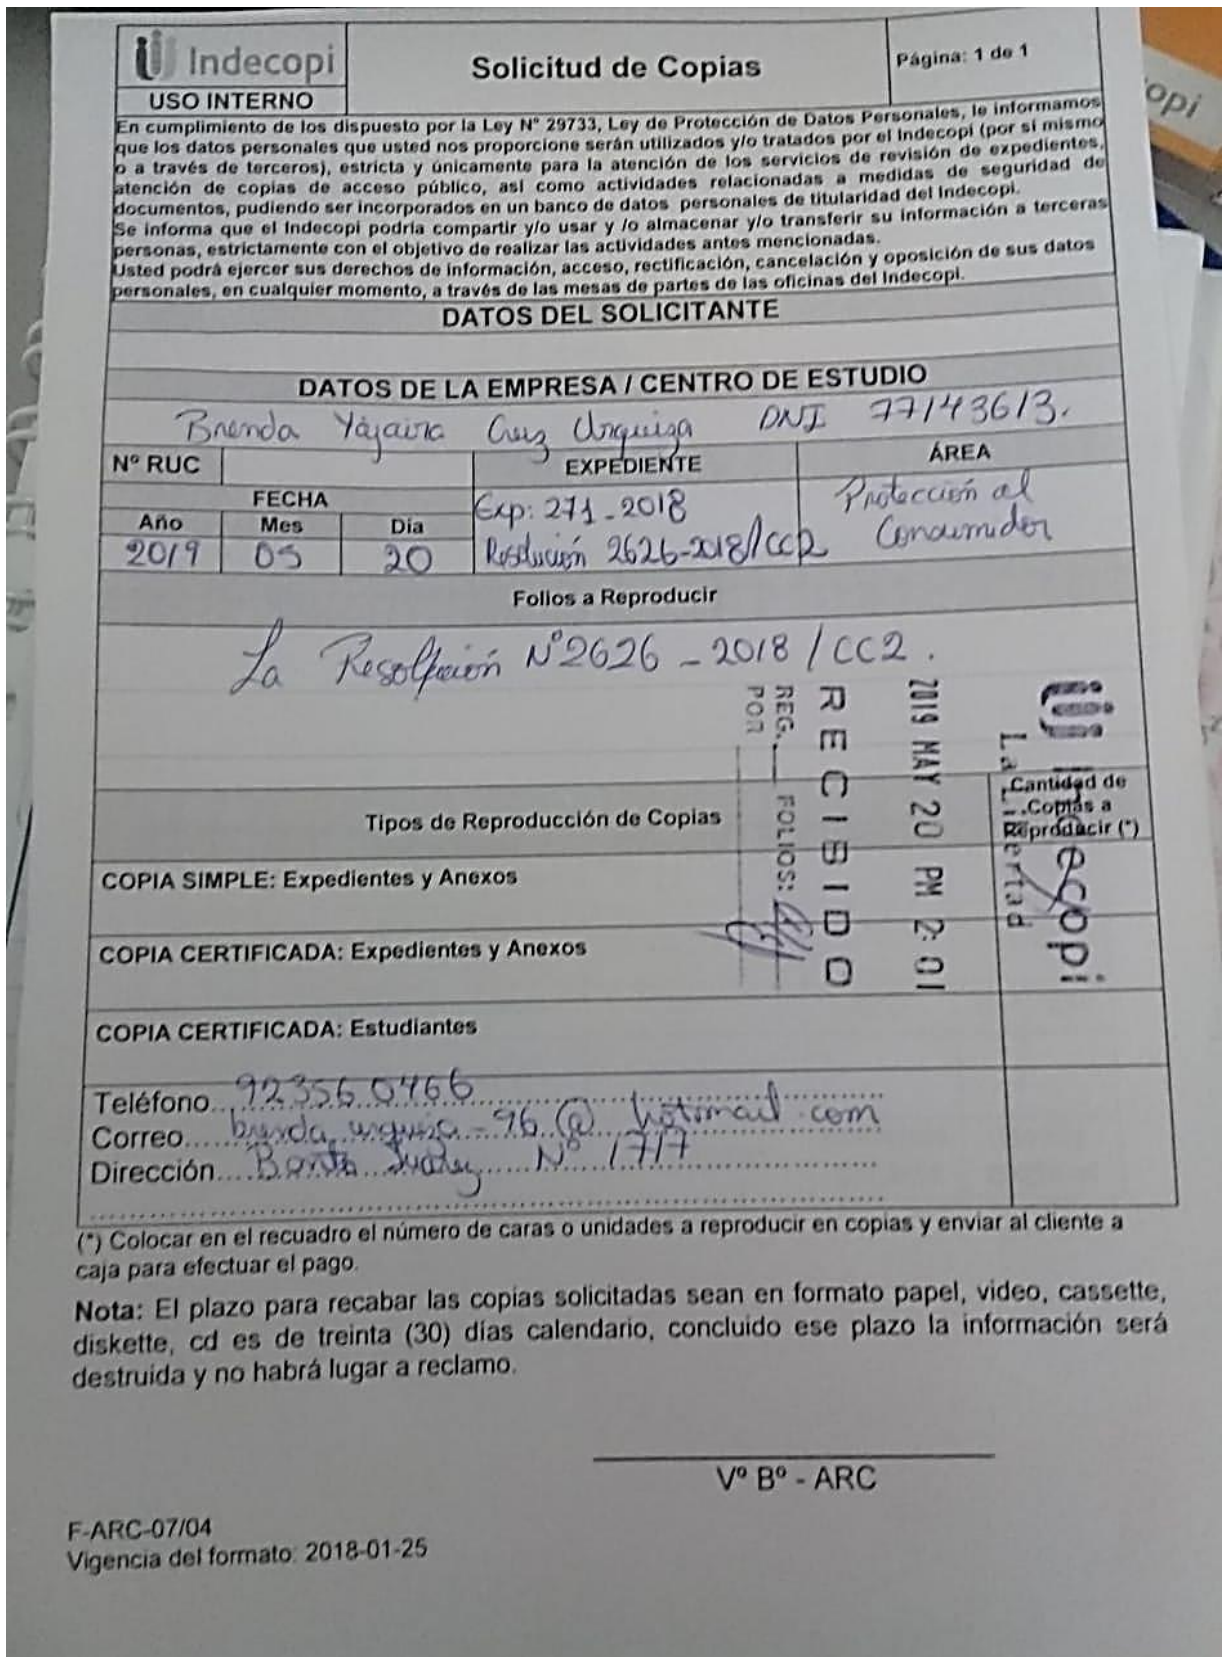 Indecopi
USO INTERNO
Solicitud de Copias
Página: 1 de 1
opi
En cumplimiento de los dispuesto por la Ley Nº 29733, Ley de Protección de Datos Personales, le informamos
que los datos personales que usted nos proporcione serán utilizados y/o tratados por el Indecopi (por si mismo
o a través de terceros), estricta y únicamente para la atención de los servicios de revisión de expedientes,
atención de copias de acceso público, así como actividades relacionadas a medidas de seguridad de
documentos, pudiendo ser incorporados en un banco de datos personales de titularidad del Indecopi.
Se informa que el Indecopi podría compartir y/o usar y /o almacenar y/o transferir su información a terceras
personas, estrictamente con el objetivo de realizar las actividades antes mencionadas.
Usted podrá ejercer sus derechos de información, acceso, rectificación, cancelación y oposición de sus datos
personales, en cualquier momento, a través de las mesas de partes de las oficinas del Indecopi.
DATOS DEL SOLICITANTE
DATOS DE LA EMPRESA / CENTRO DE ESTUDIO
Brenda Yajaira Cruz Urquiza DNI 77143613.
Nº RUC
EXPEDIENTE
ÁREA
FECHA
Exp: 271-2018
Protección al
Año Mes Dia
Consumidor
2019 05 20
Resolución 2626-2018/CC2
Folios a Reproducir
La Resolución Nº2626-2018/CC2.
Indecopi
La Libertad
2019 MAY 20 PM 2:01
RECIBIDO
REG. FOLIOS:
POR
Tipos de Reproducción de Copias
Cantidad de
Copias a
Reproducir (*)
COPIA SIMPLE: Expedientes y Anexos
COPIA CERTIFICADA: Expedientes y Anexos
COPIA CERTIFICADA: Estudiantes
Teléfono 923560466
Correo brenda_urquiza_96@hotmail.com
Dirección Benito Juárez Nº 1717
(*) Colocar en el recuadro el número de caras o unidades a reproducir en copias y enviar al cliente a
caja para efectuar el pago.
Nota: El plazo para recabar las copias solicitadas sean en formato papel, video, cassette,
diskette, cd es de treinta (30) días calendario, concluido ese plazo la información será
destruida y no habrá lugar a reclamo.
Vº Bº - ARC
F-ARC-07/04
Vigencia del formato: 2018-01-25